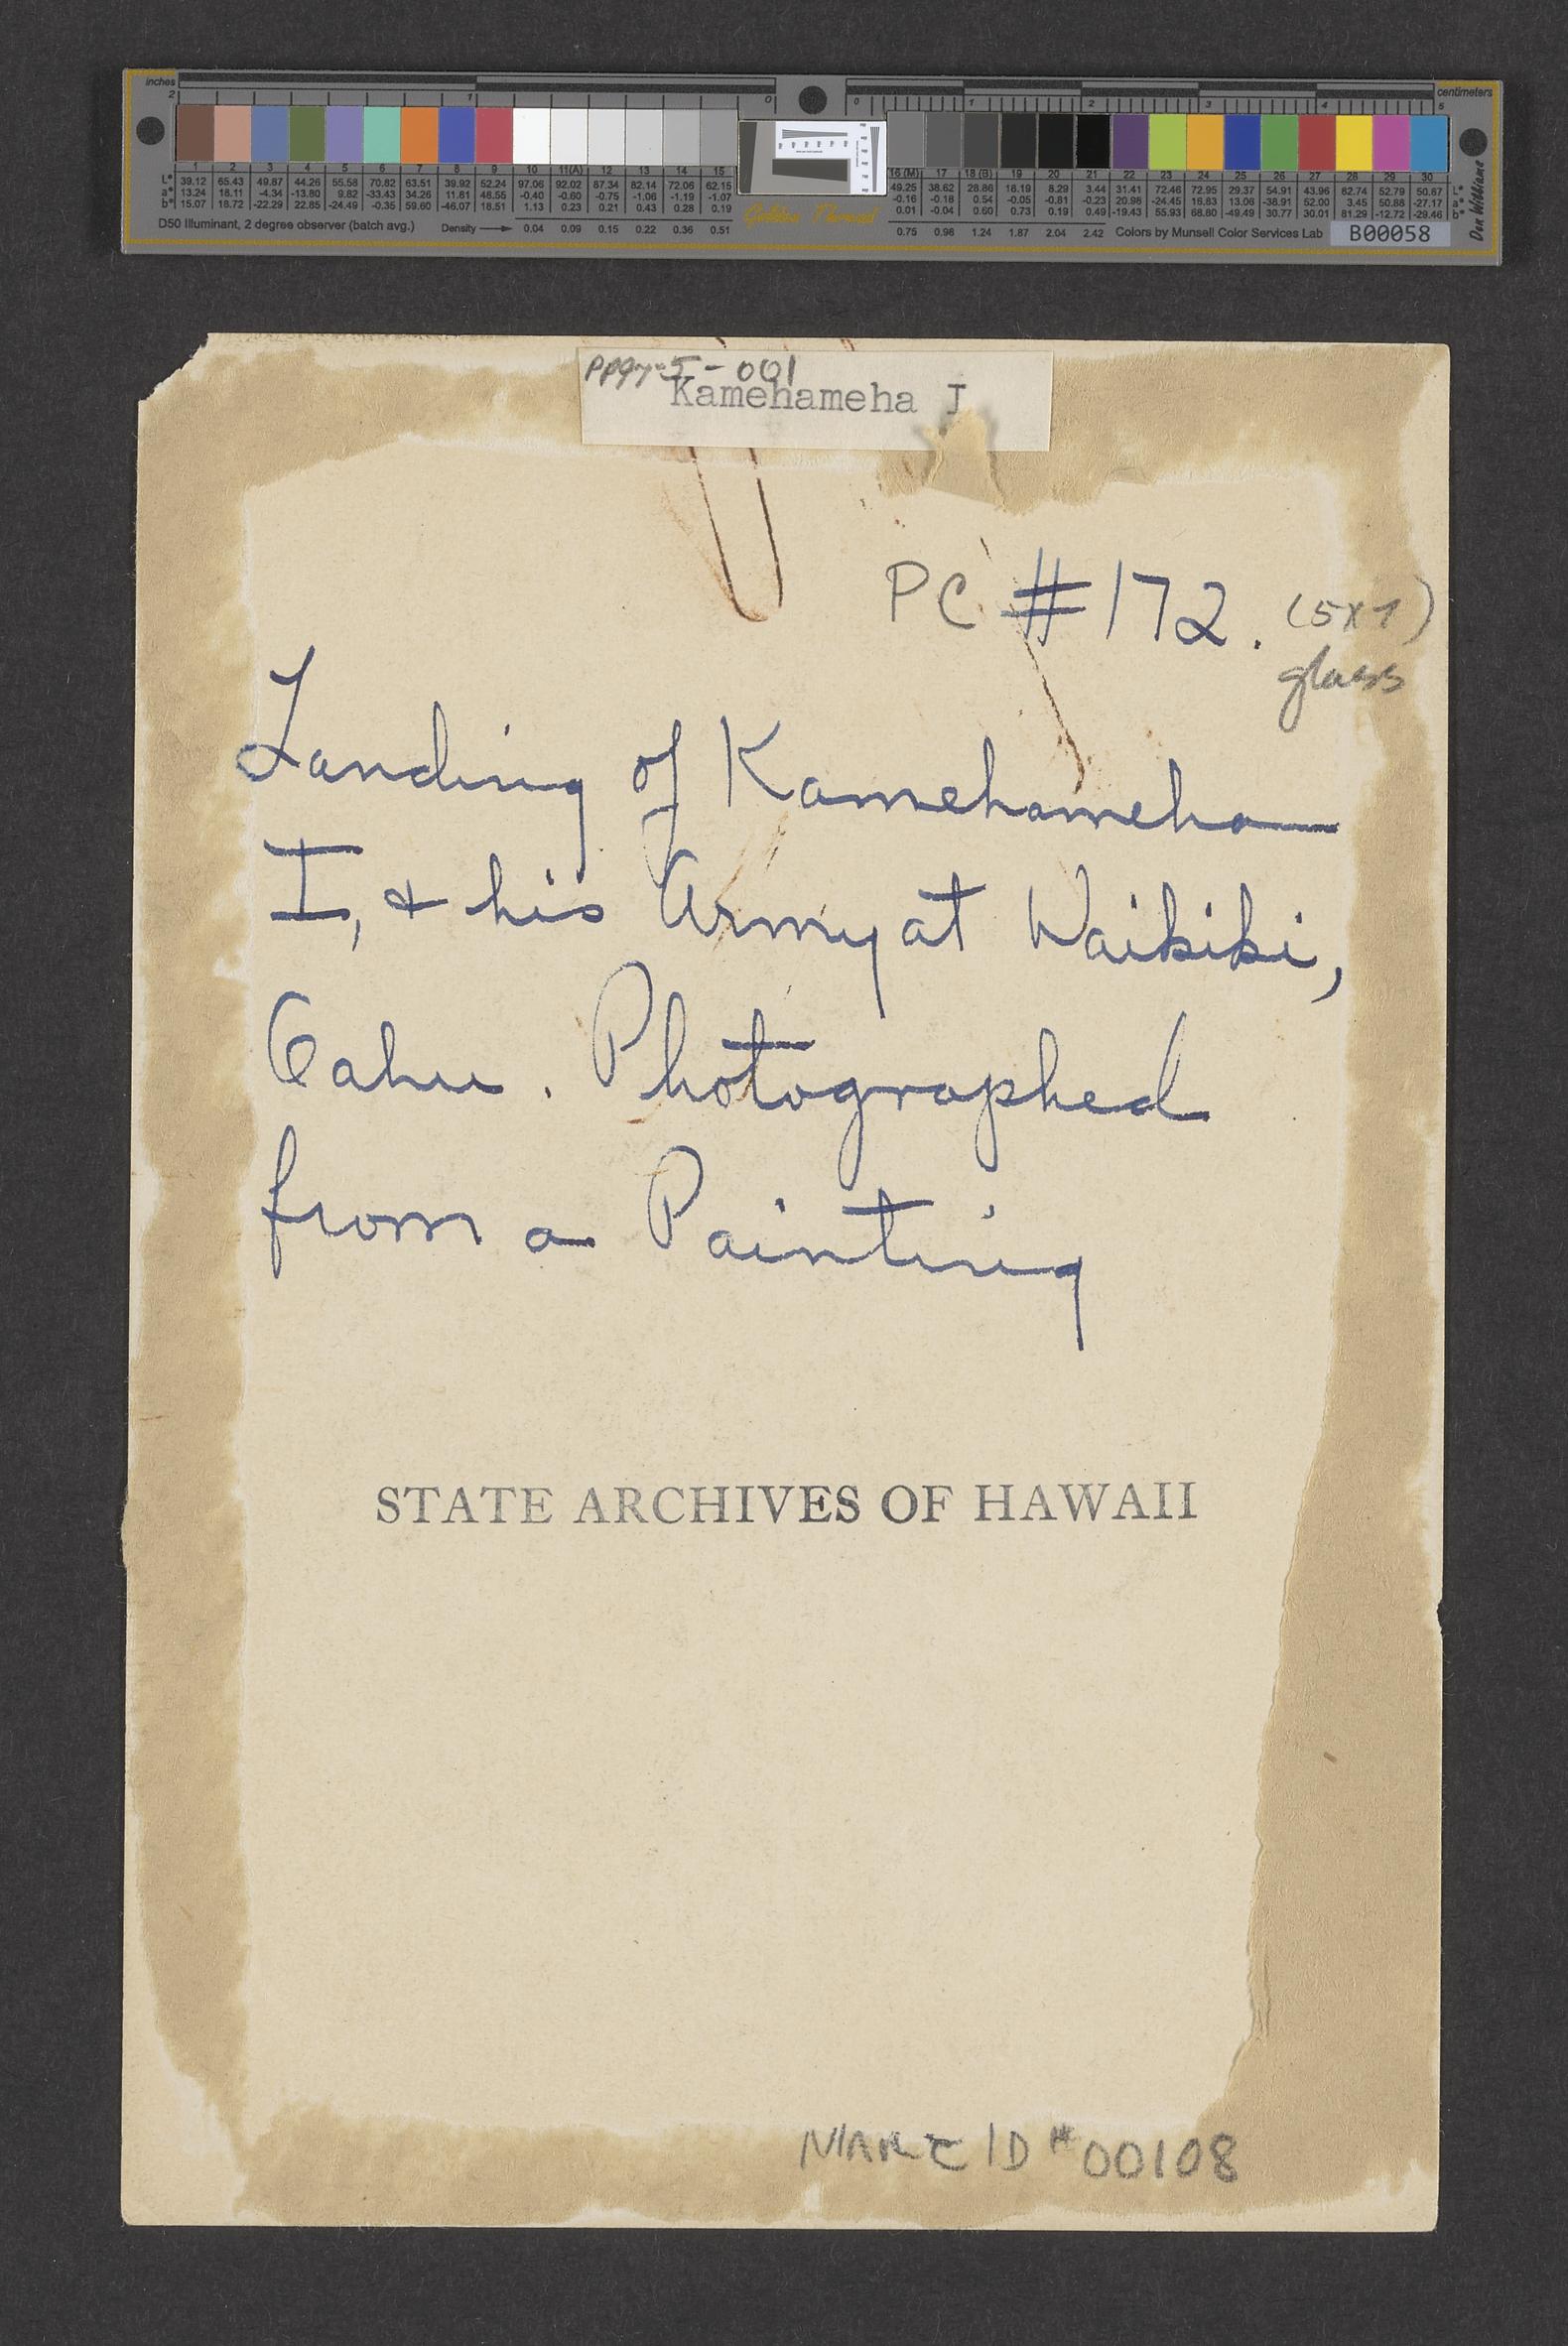 inches
centimeters
2 1 0 0 1 2 3 4 5
1 2 3 4 5 6 7 8 9 10 11(A) 12 13 14 15 16 (M) 17 18 (B) 19 20 21 22 23 24 25 26 27 28 29 30
L* 39.12 65.43 49.87 44.26 55.58 70.82 63.51 39.92 52.24 97.06 92.02 87.34 82.14 72.06 62.15 49.25 38.62 28.86 16.19 8.29 3.44 31.41 72.46 72.95 29.37 54.91 43.96 82.74 52.79 50.87 L*
a* 13.24 18.11 -4.34 -13.80 9.82 -33.43 34.26 11.81 48.55 -0.40 -0.60 -0.75 -1.06 -1.19 -1.07 -0.16 -0.18 0.54 -0.05 -0.81 -0.23 20.98 -24.45 16.83 13.06 -38.91 52.00 3.45 50.88 -27.17 a*
b* 15.07 18.72 -22.29 22.85 -24.49 -0.35 59.60 -46.07 18.51 1.13 0.23 0.21 0.43 0.28 0.19 0.01 -0.04 0.60 0.73 0.19 0.49 -19.43 55.93 68.80 -49.49 30.77 30.01 81.29 -12.72 -29.46 b*
D50 Illuminant, 2 degree observer (batch avg.) Density 0.04 0.09 0.15 0.22 0.36 0.51 Golden Thread 0.75 0.98 1.24 1.87 2.04 2.42 Colors by Munsell Color Services Lab B00058
Don Williams
5-001
Kamehameha I
PC #172. (5x7)
glass
Landing of Kamehameha
I, & his Army at Waikiki,
Oahu. Photographed
from a Painting
STATE ARCHIVES OF HAWAII
ID #00108